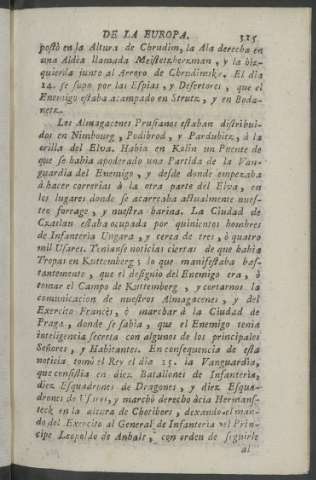 DE LA EUROPA. 325
postò en la Altura de Chrudim, la Ala derecha en
una Aldea llamada Meistetzherzman, y la Iz-
quierda junto al Arroyo de Chrudimske. El dia
14. se supo por las Espias, y Desertores, que el
Enemigo estaba acampado en Strutz, y en Boda-
netz.
Los Almagacenes Prusianos estaban distribui-
dos en Nimbourg, Podibrod, y Pardubitz, à la
orilla del Elva. Habia en Kolin un Puente de
que se habia apoderado una Partida de la Van-
guardia del Enemigo, y desde donde empezaba
à hacer correrias à la otra parte del Elva, en
los lugares donde se acarreaba actualmente nues-
tro forrage, y nuestra harina. La Ciudad de
Czaslau estaba ocupada por quinientos hombres
de Infanteria Ungara, y cerca de tres, ò quatro
mil Usares. Tenianse noticias ciertas de que habia
Tropas en Kuttemberg; lo que manifestaba bas-
tantemente, que el designio del Enemigo era, ò
tomar el Campo de Kuttemberg, y cortarnos la
comunicacion de nuestros Almagacenes, y del
Exercito Francès, ò marchar à la Ciudad de
Praga, donde se sabia, que el Enemigo tenia
inteligencia secreta con algunos de los principales
Señores, y Habitantes. En consequencia de esta
noticia tomò el Rey el dia 15. la Vanguardia,
que consistia en diez Batallones de Infanteria,
diez Esquadrones de Dragones, y diez Esqua-
drones de Usares, y marchò derecho àcia Hermans-
teck en la altura de Chotibors, dexando el man-
do del Exercito al General de Infanteria el Prin-
cipe Leopoldo de Anhalt, con orden de seguirle
al